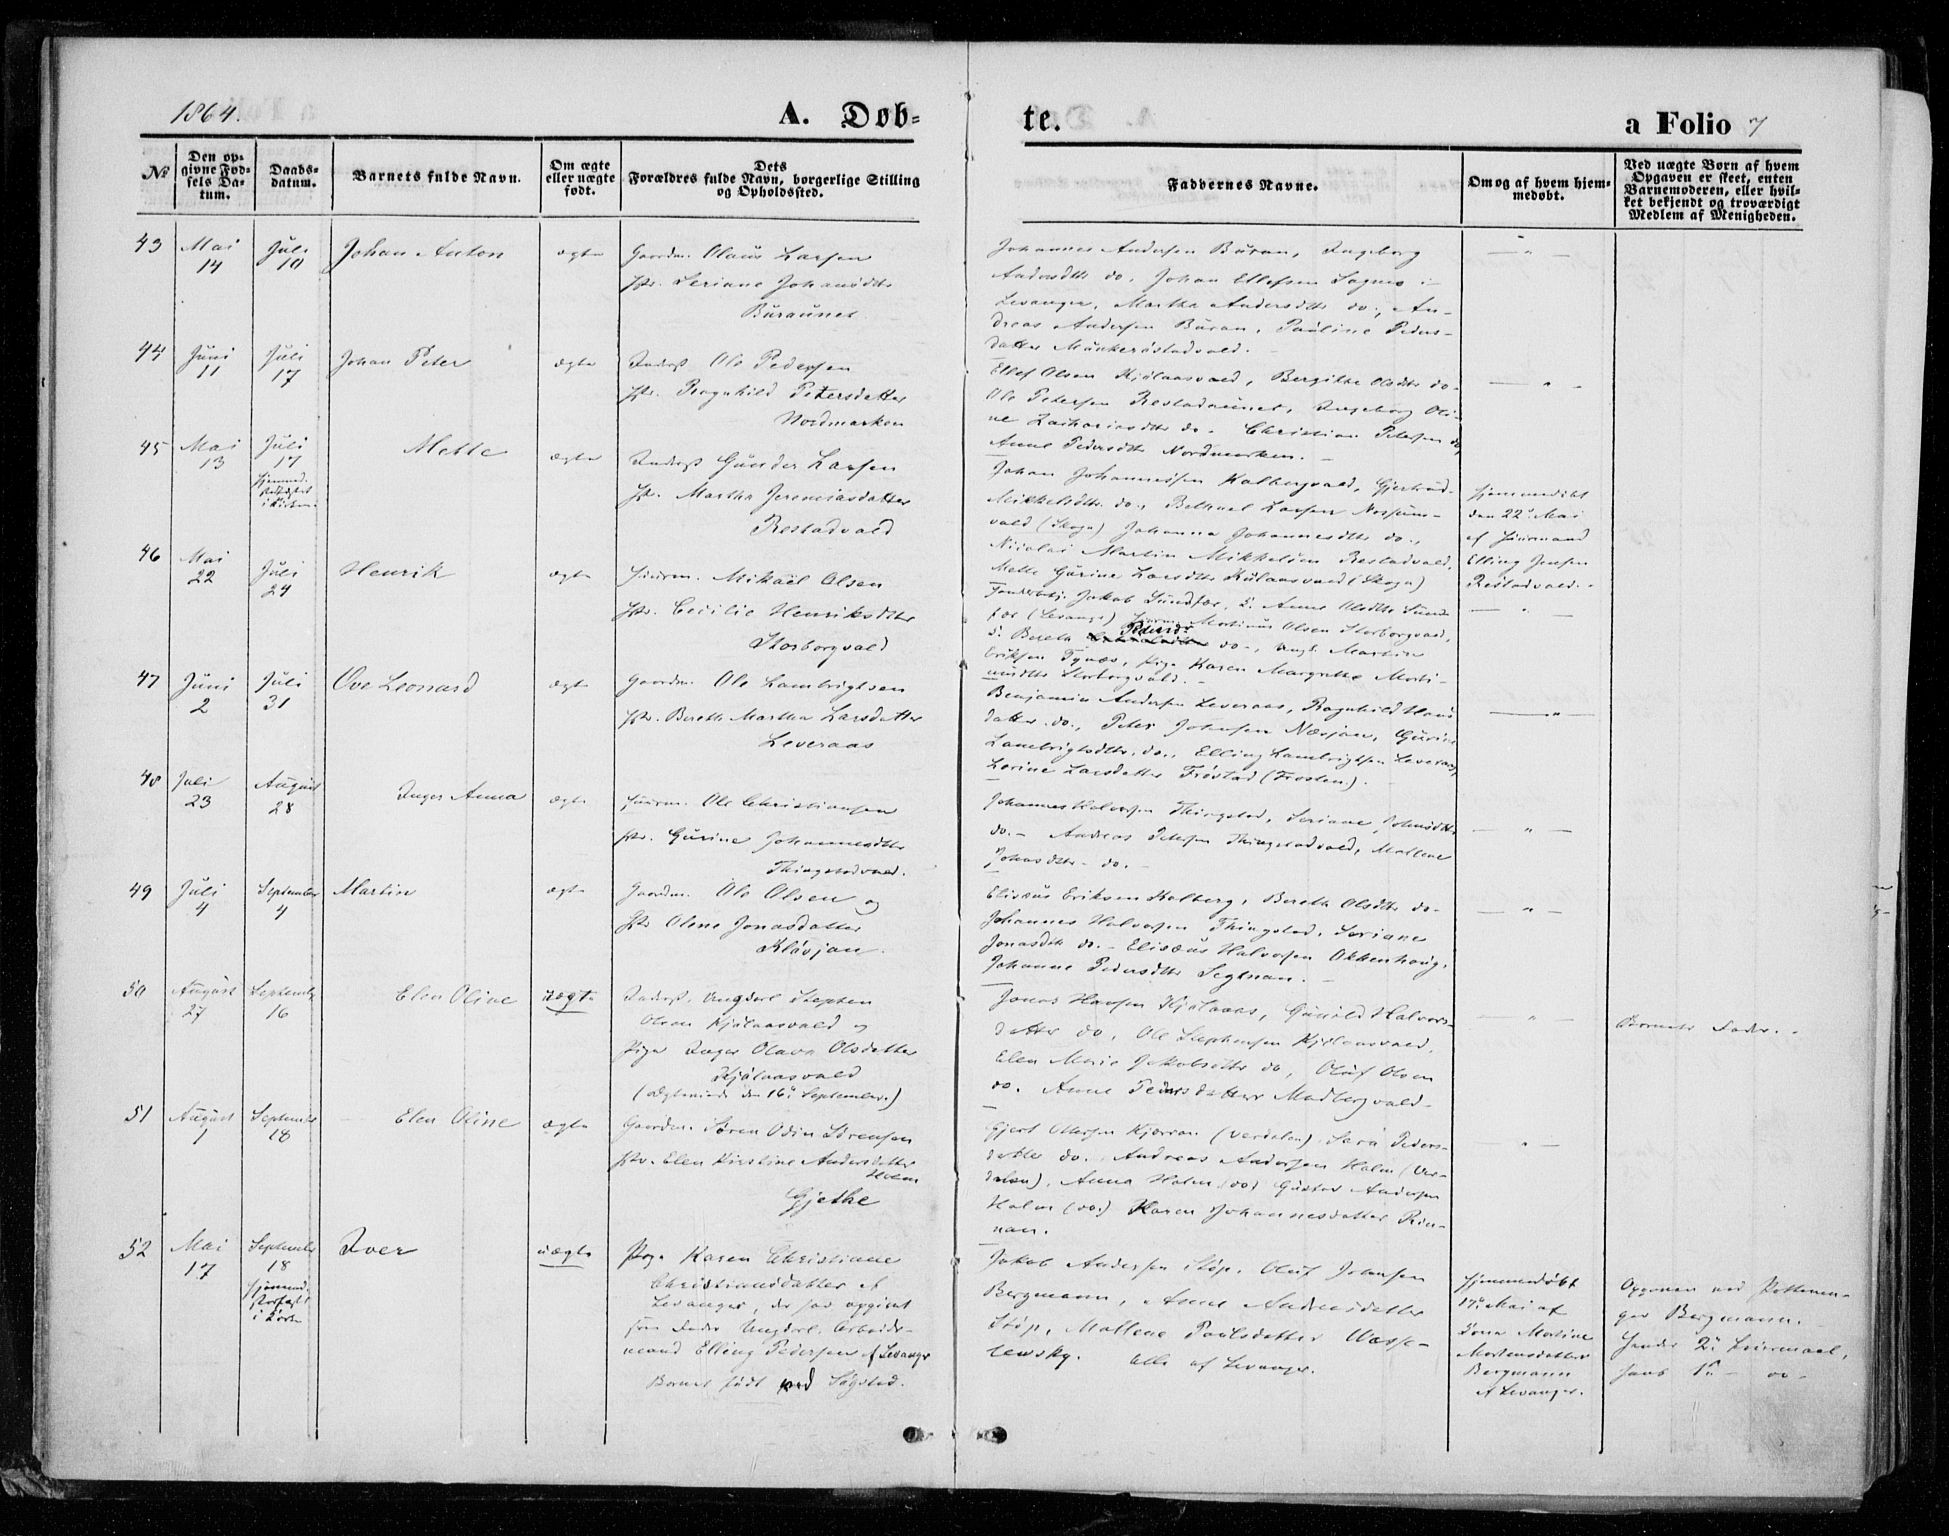 1864.
A. Døb-
te.
a Folio 7
No
Den op-
givne Fød-
sels Da-
tum.
Daabs-
datum.
Barnets fulde Navn.
Om ægte
eller uægte
født.
Dets
Forældres fulde Navn, borgerlige Stilling
og Opholdssted.
Faddernes Navne.
Om og af hvem hjem-
medøbt.
Ved uægte Børn af hvem
Opgaven er skeet, enten
Barnemoderen, eller hvil-
ket bekjendt og troværdigt
Medlem af Menigheden.
43
Mai
14
Juli
10
Johan Anton
ægte
Gaardm. Olaus Larsen
Hstr. Seriane Johansdtr
Buraunet
Johannes Andersen Buran, Ingeborg
Andersdtr do, Johan Ellefsen Sagnes i
Levanger, Martha Andersdtr do., An-
dreas Andersen Buran, Pauline Peders-
datter Munkerøstadvald.
44
Juni
11
Juli
17
Johan Peter
ægte
Inderst Ole Pedersen
Hstr. Ragnhild Petersdatter
Nordmarken
Ellef Olsen Kjølaasvald, Bergithe Olsdtr do-
Ole Petersen Restadaunet, Ingeborg Oli-
ne Zachariasdtr do. Christian Petersen do,
Anne Pedersdtr Nordmarken.
45
Mai
13
Juli
17
hjemmed.
stadfæstet
i Kirken.
Mette
ægte
Inderst Gunder Larsen
Hstr. Martha Jeremiasdatter
Restadvald
Johan Johannesen Halbergvald, Gjertrud
Mikkelsdtr. do., Bethuel Larsen Nossum-
vald (Skogn) Johanna Johannesdtr do.,
Nicolai Martin Mikkelsen Restadvald,
Mette Gurine Larsdtr Kulaasvald (Skogn)
hjemmedøbt
den 22de Mai
af Huusmand
Elling Jensen
Restadvald.
46
Mai
22
Juli
24
Henrik
ægte
Huusm. Mikael Olsen
Hstr. Cecilie Henriksdtr
Storborgvald
Jakob Sundfær, Anne Olsdtr Sund-
fær (Levanger) Huusm. Martinus Olsen Storborgvald,
Bereth Pedersdtr do., Ungk. Martin
Eriksen Tynæs, Pige Karen Margrethe Marti-
nusdtr Storborgvald.
47
Juni
2
Juli
31
Ove Leonard
ægte
Gaardm. Ole Lambrigtsen
Hstr. Bereth Martha Larsdatter
Leveraas
Benjamin Andersen Leveraas, Ragnhild Hans-
datter do., Peter Johnsen Næsjan, Gurine
Lambrigtsdtr. do., Elling Lambrigtsen Leveraas,
Lorine Larsdatter Frøstad (Frosten.)
48
Juli
23
August
28
Inger Anna
ægte
Huusm. Ole Christiansen
Hstr. Gurine Johannesdtr
Thingstadvald.
Johannes Halvorsen Thingstad, Seriane Johnsdtr
do. - Andreas Petersen Thingstadvald, Mallene
Johnsdtr do.
49
Juli
4
September
4
Martin
ægte
Gaardm. Ole Olsen og
Hstr Olene Jonasdatter
Kløvjan.
Elisæus Eriksen Halberg, Bereth Olsdtr do-
Johannes Halvorsen Thingstad, Seriane
Jonasdtr do. - Elisæus Halvorsen Okkenhoug,
Johanne Pedersdtr Segtnan.
50
August
27
September
16
Elen Oline
uægte
Inderst, Ungkarl Stephen
Olsen Kjølaasvald og
Pige Inger Olava Olsdatter
Kjølaasvald
(Ægteviede den 16de September.)
Jonas Hansen Kjølaas, Gunild Halvors-
datter do, Ole Stephensen Kjølaasvald,
Elen Marie Jakobsdtr do, Oluf Olsen
do. Anne Pedersdatter Madbergvald.
Barnets Fader.
51
August
1
September
18
Elen Oline
ægte
Gaardm. Søren Odin Sørensen
Hstr. Elen Kirstine Andersdatter
Holm
Gjethe
Gjert Olsen Kjærran (Verdalen), Sara Peders-
datter do. Andreas Andersen Holm (Ver-
dalen), Anna Holm (do) Gustav Andersen
Holm (do.) Karen Johannesdatter Rin-
nan.
52
Mai
17
September
18
hjemmed.
stadfæst
i Kirke
Iver
uægte
Pige Karen Christiane
Christiansdatter af
Levanger, der har opgivet
som Fader Ungkarl, Arbeids-
mand Elling Pedersen af Levanger
Barnet født ved Salgstad.
Jakob Andersen Støp, Oluf Johnsen
Bergmann, Anne Andreasdatter
Støp, Mallene Paulsdatter Wasse-
lewsky. Alle af Levanger.
hjemmedøbt
17de Mai af
Jona Martine
Mortensdatter
Bergmann
af Levanger.
Opgaven ved Pottema-
ger Bergmann.
Hendes 2de Leiermaal,
hans 1ste - do -